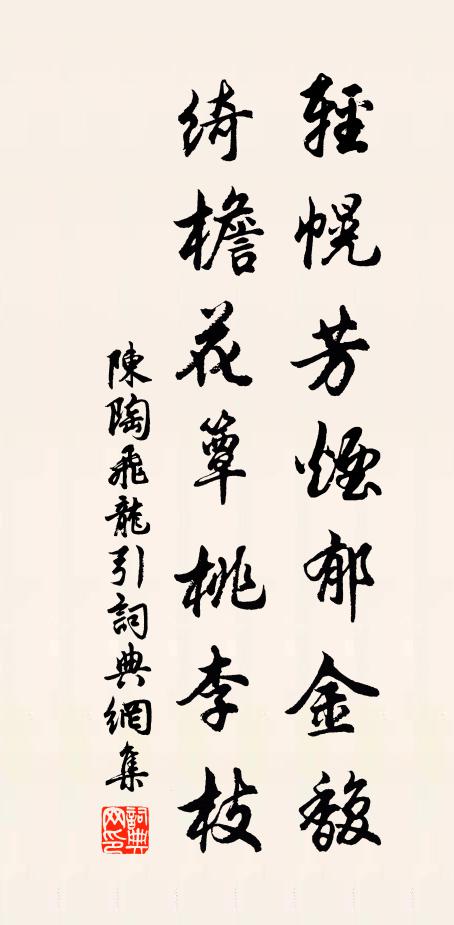 輕幌芳煙郁金馥
綺檐花簟桃李枝
陳陶飛龍引詞典網集
詞典網印